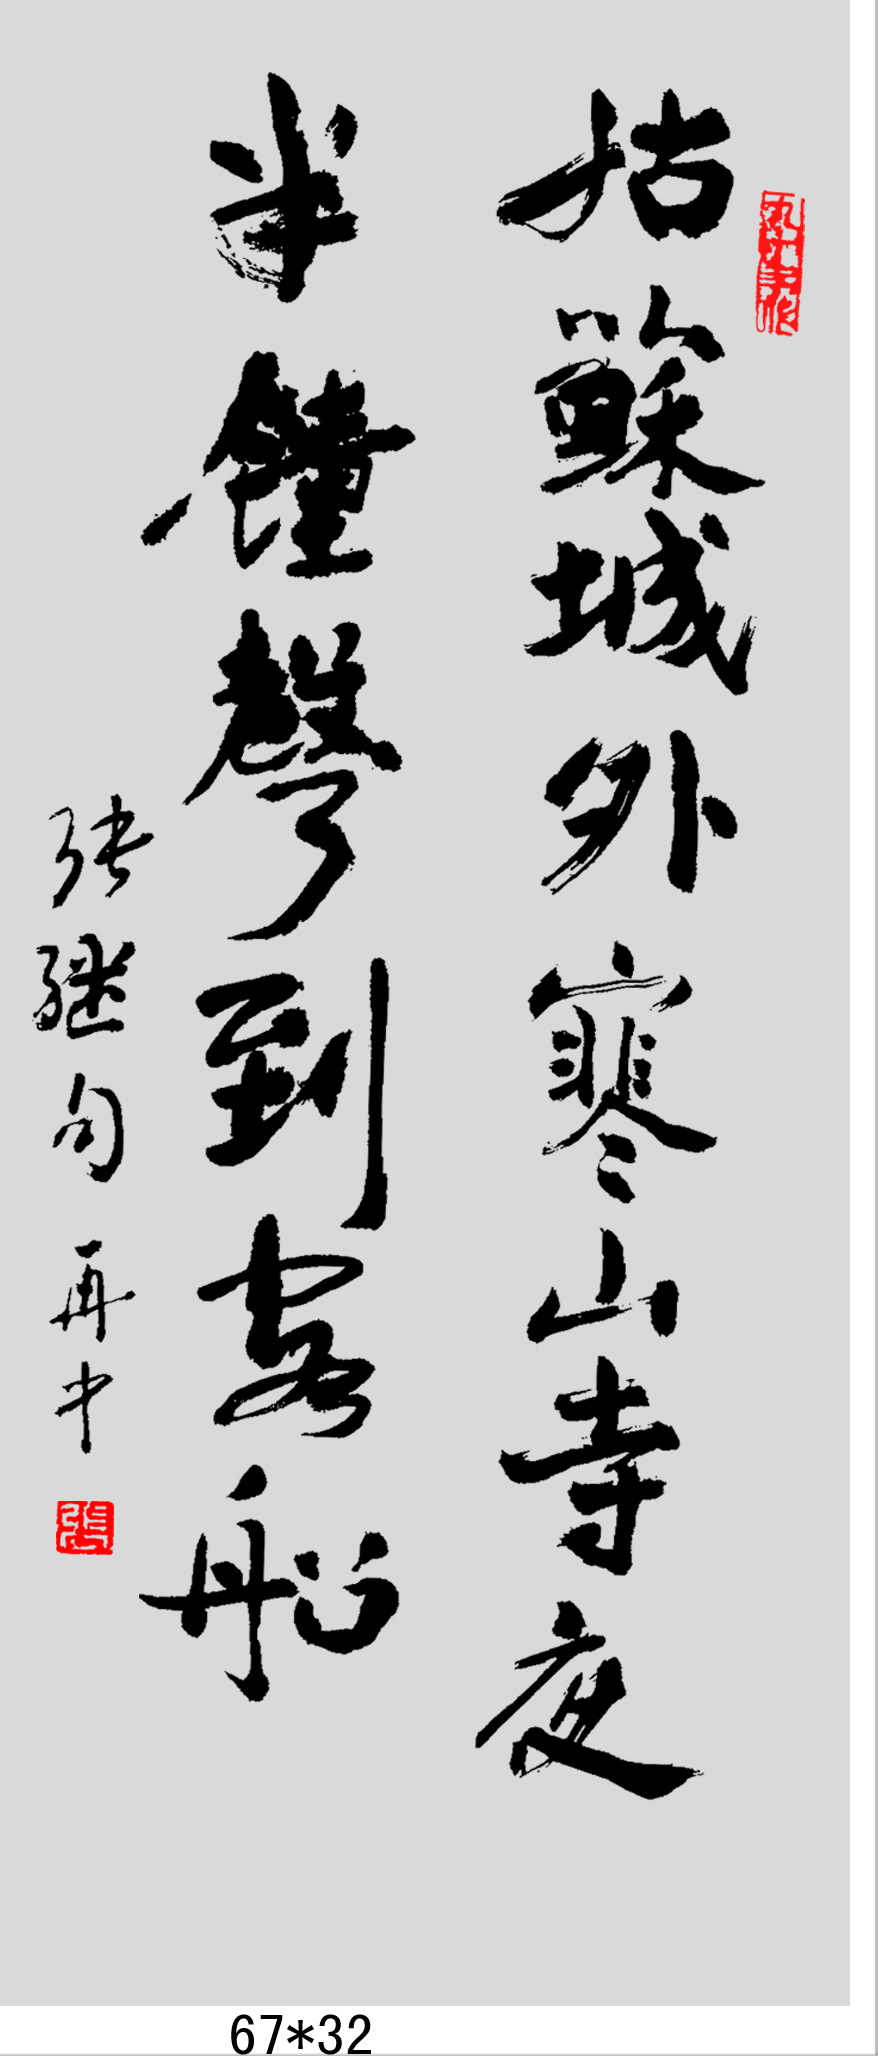 姑蘇城外寒山寺夜
半鐘聲到客船
张继句 再中
67*32